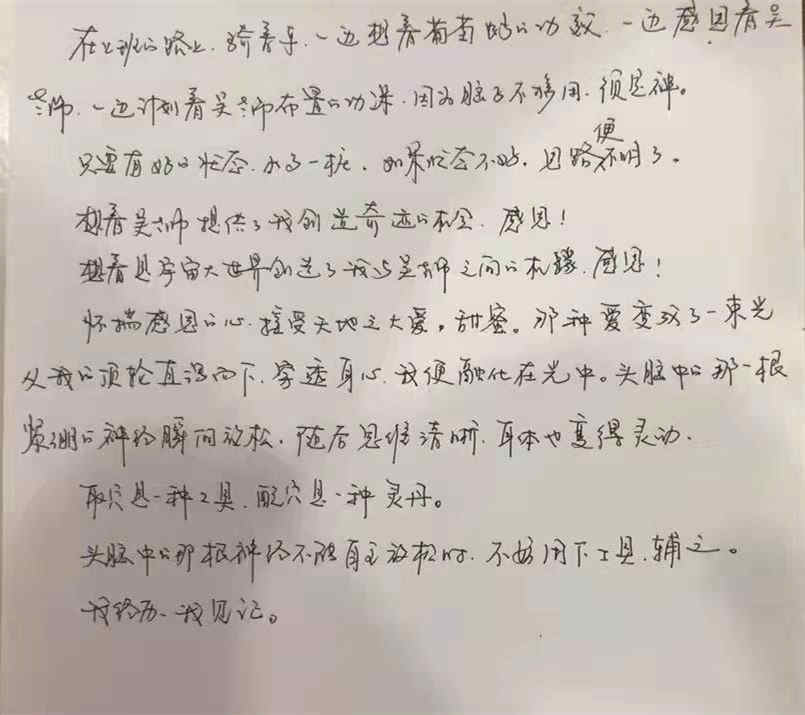 在上班的路上，骑着车，一边想着葡萄的功效，一边感恩着吴
老师，一边计划着吴老师布置的功课，因为脑子不够用，须是神。
只要有好的状态，水了一桩，如果状态不好，思路便不明了。
想着吴老师提供了我创造奇迹的机会，感恩！
想着是宇宙大世界创造了我与吴老师之间的机缘，感恩！
怀揣感恩的心，接受天地之大爱，甜蜜。那种爱变成了一束光
从我的顶轮直灌而下，穿透身心，我便融化在光中。头脑中的那一根
紧绷的神经瞬间放松，随后思维清晰，身体也变得灵动。
取穴是一种工具，配穴是一种灵丹。
头脑中的那根神经不能自主放松时，不妨用下工具，辅之。
我经历，我见证。